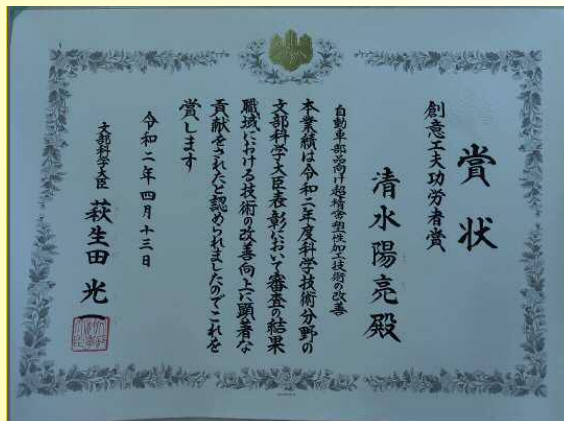 賞状
創意工夫功労者賞
清水陽亮殿
自動車部品向け超精密塑性加工技術の改善
本業績は令和二年度科学技術分野の
文部科学大臣表彰において審査の結果
職域における技術の改善向上に顕著な
貢献をされたと認められましたのでこれを
賞します
令和二年四月十三日
文部科学大臣 萩生田光一